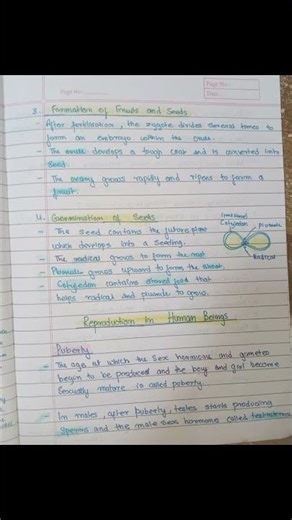 Page No.
Page No.
Date:
3. Formation of Fruits and Seeds
- After fertilisation, the zygote divides several times to
form an embryo within the ovule.
- The ovule develops a tough coat and is converted into
seed.
- The ovary grows rapidly and ripens to form a
fruit.
4. Germination of Seeds
- The seed contains the future plant
which develops into a seedling.
- The radical grows to form the root
- Plumule grows upward to form the shoot.
- Cotyledon contains stored food that
helps radical and plumule to grow.
Cotyledon
Plumule
Radical
Reproduction In Human Beings
Puberty
- The age at which the sex hormone and gametes
begin to be produced and the boy and girl become
sexually mature is called puberty.
- In males, after puberty, testes starts producing
sperms and the male sex hormone called testosterone